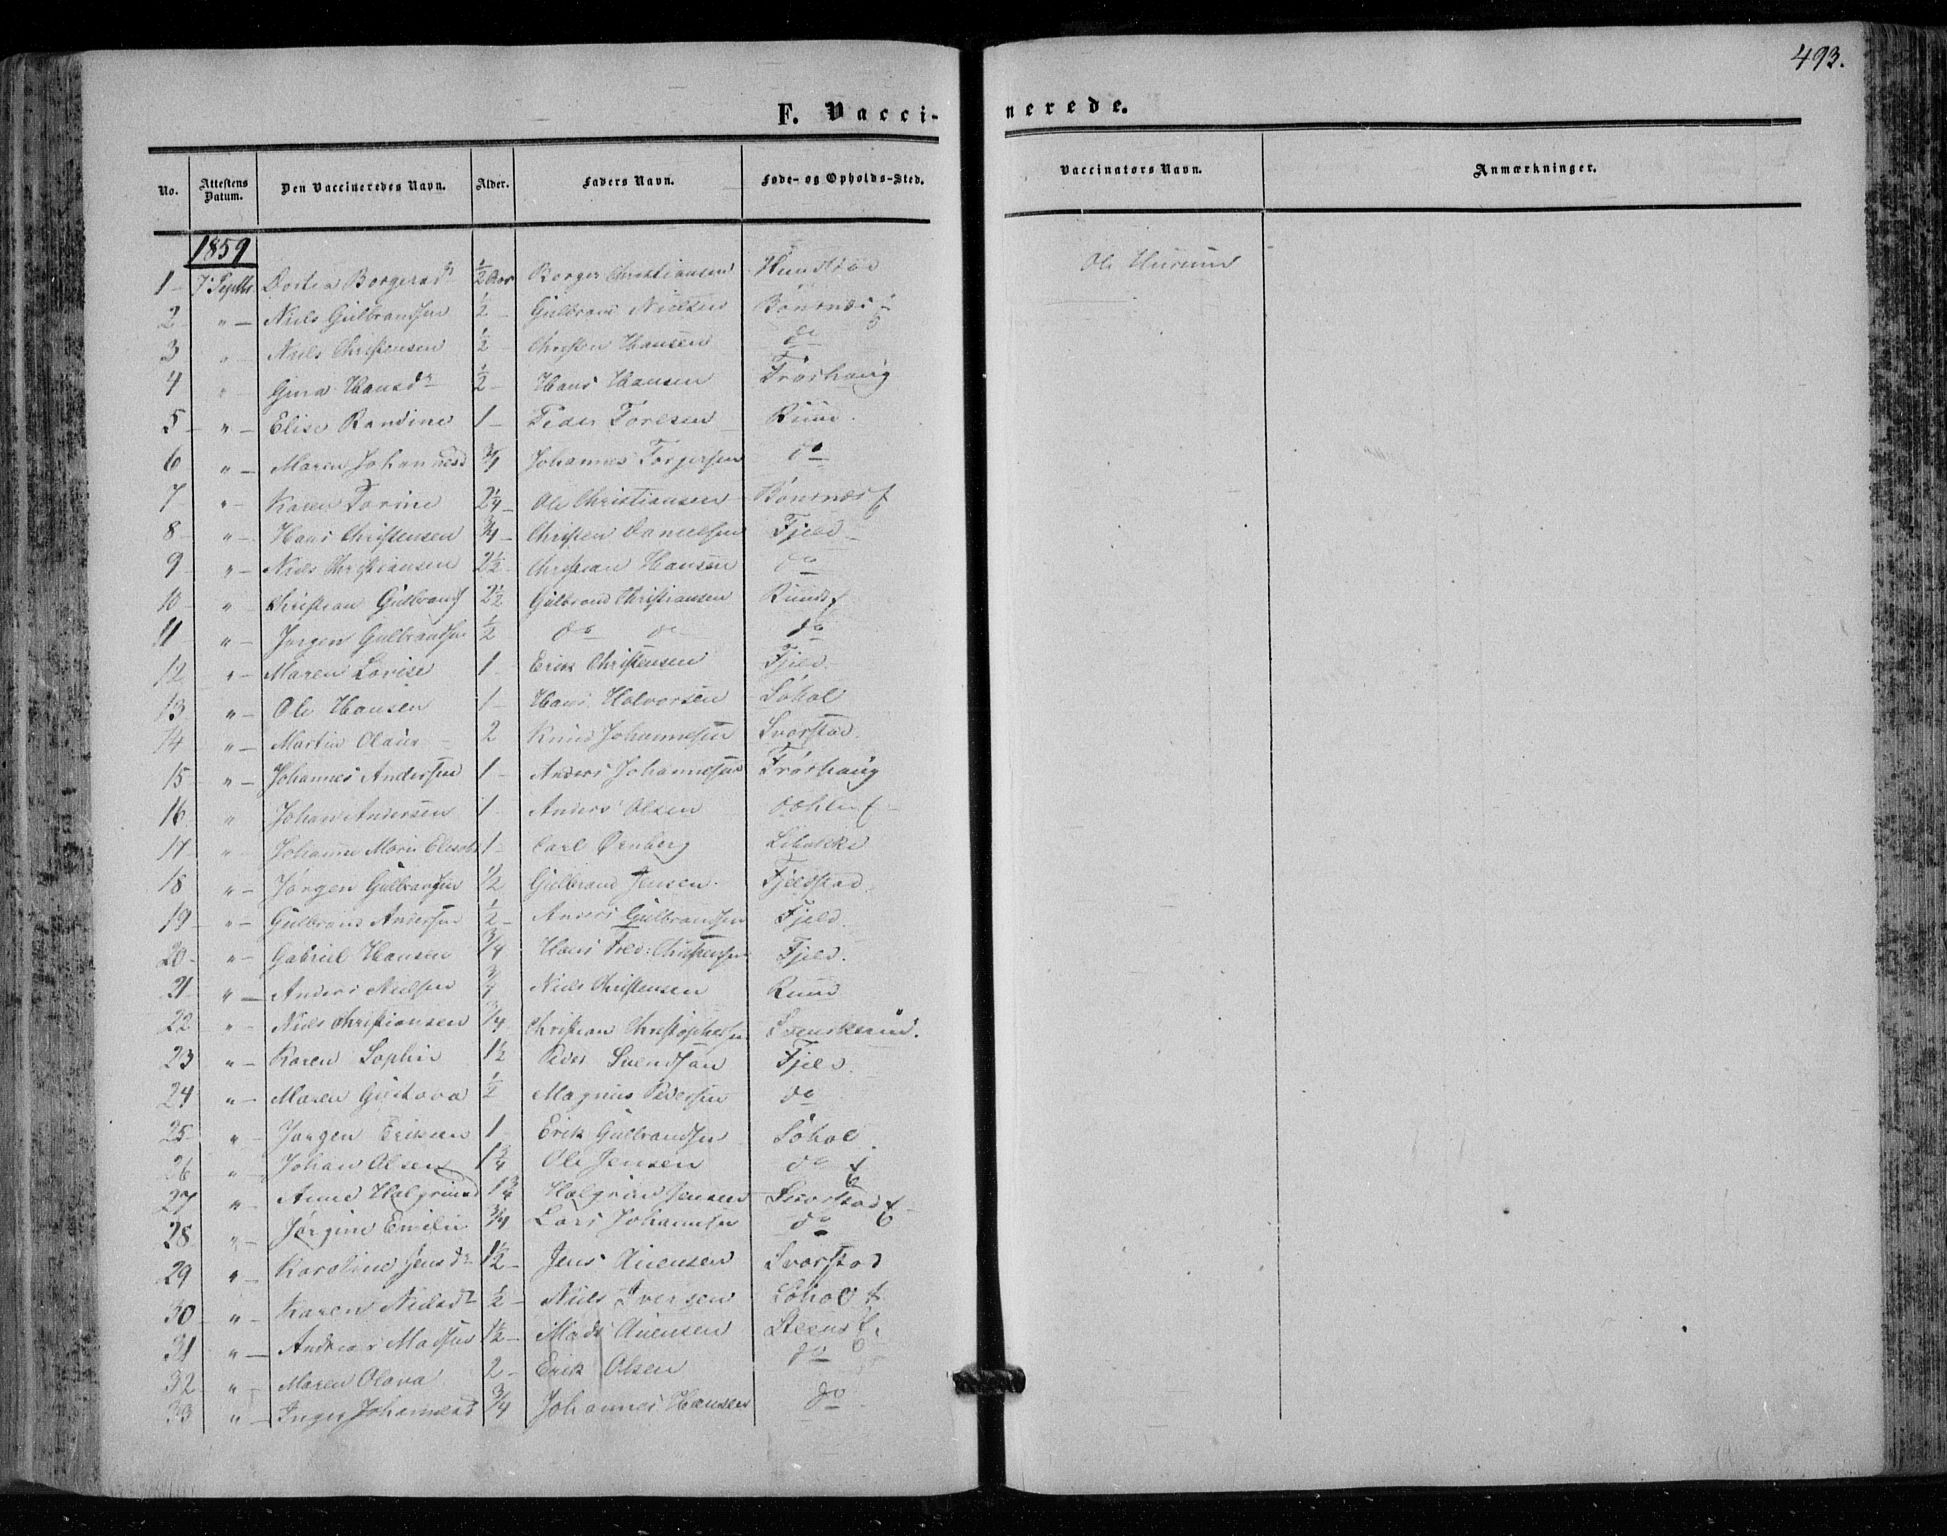 493.
F. Vaccinerede.
No. Attestens Datum. Den Vaccineredes Navn. Alder. Faders Navn. Føde- og Opholds-Sted. Vaccinators Navn. Anmærkninger.
1859
1 7 Septbr Borgersdr ½ Aar Borger Christiansen Hundstad Ole Hurum
2 " Niels Gulbrandsen ½ Gulbrand Nielsen Bønsnæs
3 " Niels Christensen ½ Christen Hansen do
4 " Gina Hansdr ½ Hans Hansen Frøshaug
5 " Elise Randine 1 Peder Toresen Ruud
6 " Maren Johannesd ¾ Johannes Torgersen do
7 " Karen Torine 2¼ Ole Christiansen Bønsnæs
8 " Hans Christensen ¾ Christen Danielsen Fjeld
9 " Niels Christiansen 2½ Christian Hansen do
10 " Christian Gulbrands 2½ Gulbrand Christiansen
11 " Jørgen Gulbrandsen ½ do do do
12 " Maren Lovise 1 Erik Christensen Fjeld
13 " Ole Hansen 1 Hans Halvorsen Søhol
14 " Martin Olaus 2 Knud Johannesen Svarstad
15 " Johannes Andersen 1 Anders Johannesen Frøshaug
16 " Johan Andersen 1 Anders Olsen
17 " Johanne Marie 1 Carl Ørnberg
18 " Jørgen Gulbrandsen ½ Gulbrand Jensen Fjeldstad
19 " Gulbrand Andersen ½ Anders Gulbrandsen Fjeld
20 " Gabriel Hansen ¾ Hans Fred: Christensen Fjeld
21 " Anders Nielsen ¾ Niels Christensen Ruud
22 " Niels Christiansen ¾ Christian Christophersen Svenskerud
23 " Karen Sophie 1½ Peder Svendsen Fjeld
24 " Maren Gustava ½ Magnus Pedersen do
25 " Jørgen Eriksen 1 Erik Gulbrandsen Søhol
26 " Johan Olsen 1¾ Ole Jensen do
27 " Anne Halgrimsd 1¾ Halgrim Jensen Svarstad
28 " Jørgine Emilie ¾ Lars Johannesen do
29 " Karoline Jensdr 1½ Jens Auensen Svarstad
30 " Karen Nielsdr ½ Niels Iversen Søhol
31 " Andreas Madsen 1½ Mads Auensen
32 " Maren Olava 2 Erik Olsen do
33 " Inger Johannesd ¾ Johannes Hansen do